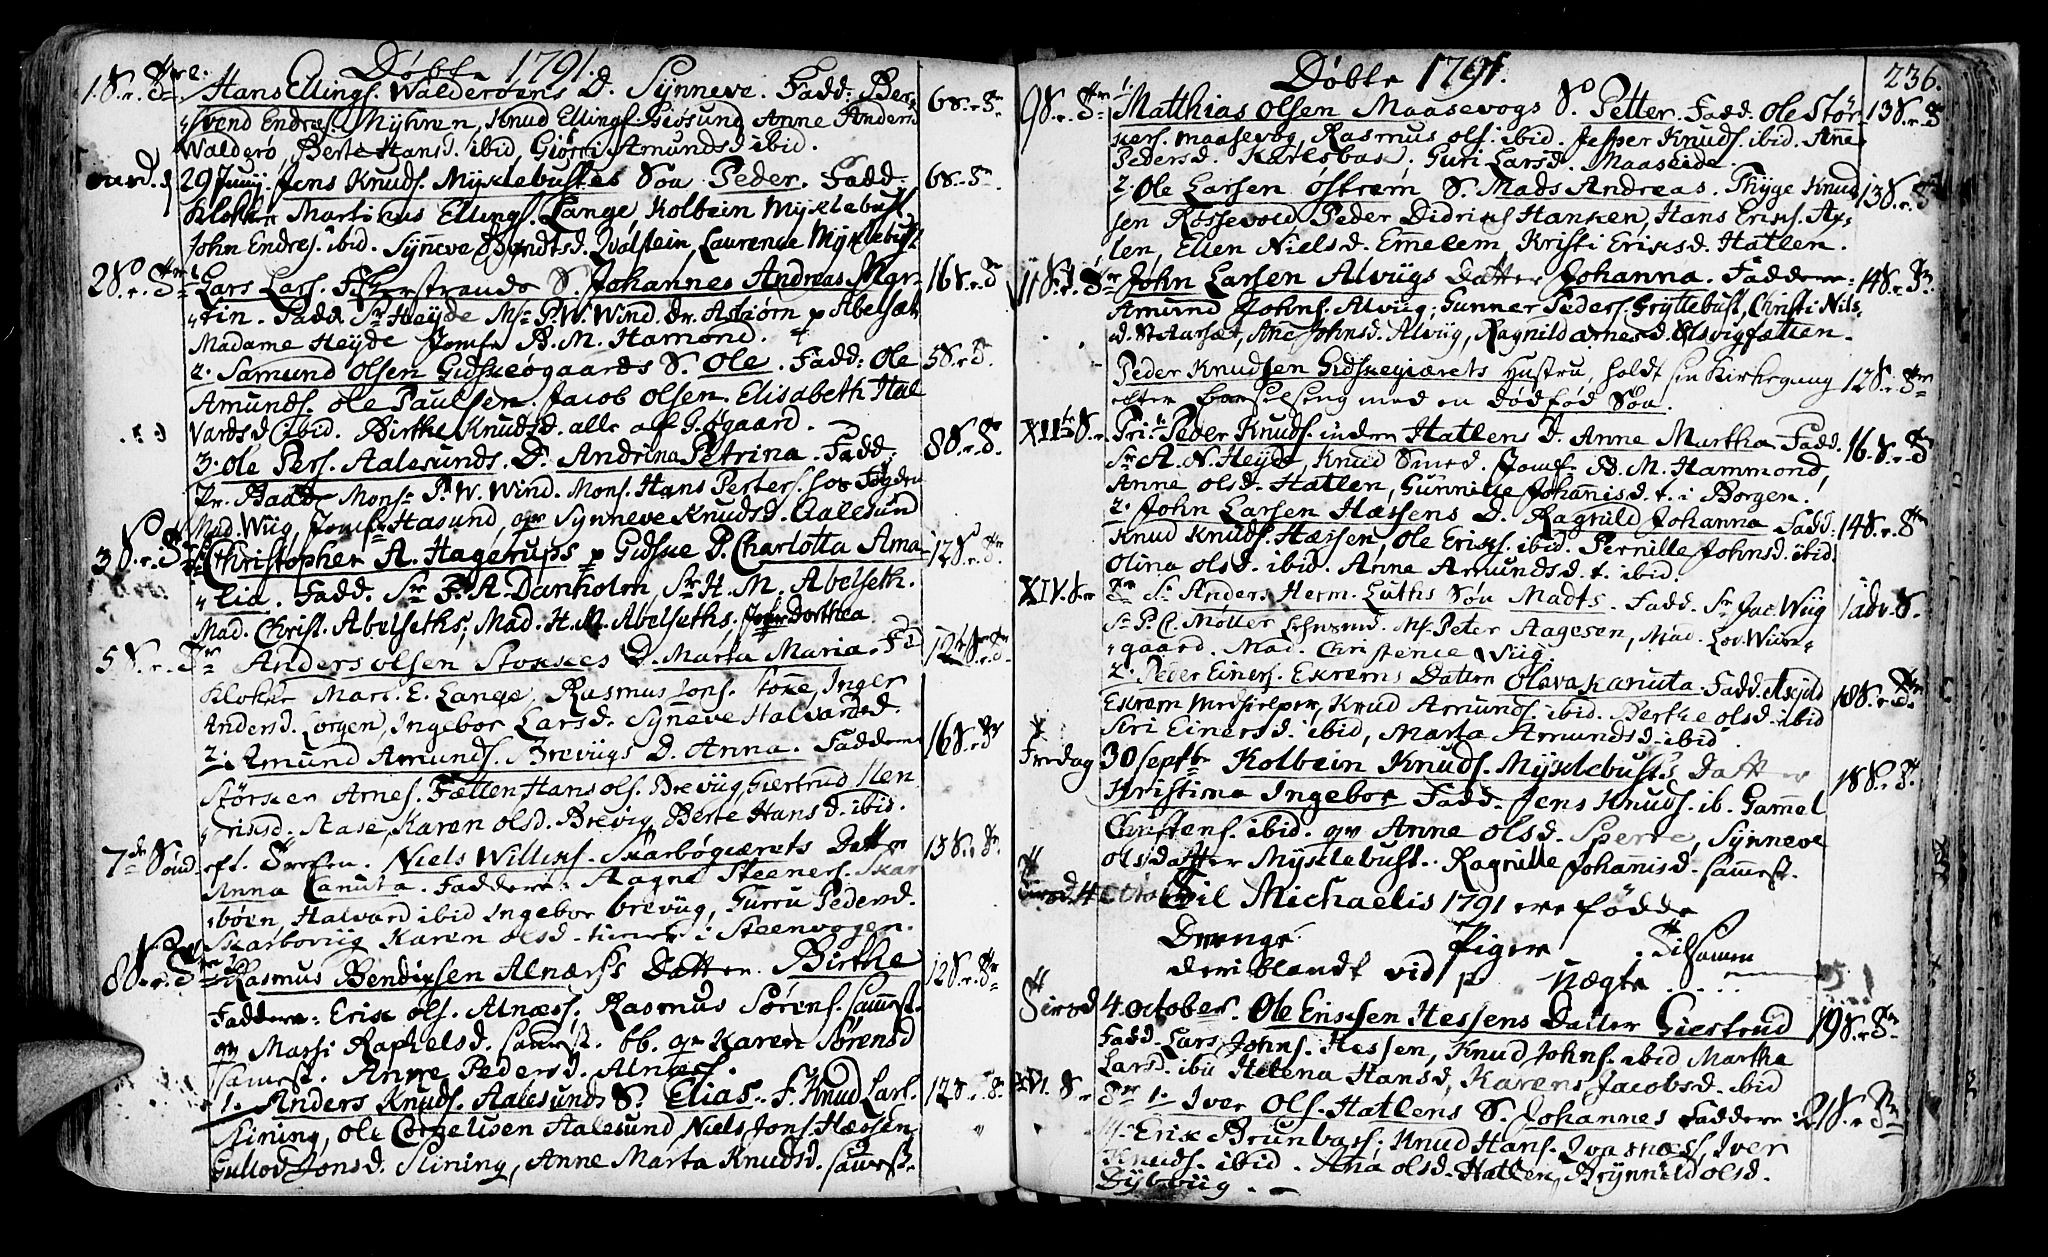 Döbte 1791.
1 S. r. Str. 2. Hans Ellings. Walderöens D. Synneve. Fadd: Ber- 6 S. r. Tr.
Svend Endres. Myhren, Knud Ellings. Giösund Anne Anders
Walderö, Berte Hansd. ibid, Giörri Amundsd ibid.
29 Junij. Jens Knuds. Myklebustes Sön Peder. Fadd. 6 S. r. Tr.
Klokker Martinus Elling. Lange, Kolbein Myklebust,
John Endres. ibid. Synneve Bendtsd. Qvalstein, Laurence Myklebust
2 S. r. Tr. 1 Lars Lars. Fiskerstrands S. Johannes Andreas Mar- 16 S. r. T
tin. Fadd. Sr Heyde Mr P. W. Wind. Dr. Asbiörn p Abelsæt
Madame Heyde Jomfr B. M. Hamond.
2. Samund Olsen Gidskeögaards S. Ole. Fadd: Ole 5 S. r. T.
Amunds. Ole Paulsen. Jacob Olsen. Elisabeth Hal
vardsd ibid. Birthe Knudsd. alle af G. ögaard.
3. Ole Pers. Aalesunds. D. Andrina Petrina. Fadd. 8 S. r. T.
Mons. P. W. Wind. Mons. Hans Peters. hos Fogden
Mad. Wiig, Jomfr Hasund, qv Synneve Knudsd. Aalesund
3 S. r. Tr. Christopher A. Hagerups p Gidske D. Charlotta Ama- 12 S. r. Tr.
lia. Fadd. Sr P. A. Danholm, Sr H. M. Abelseth.
Mad. Christ. Abelseths, Mad. H. M. Abelseths. Jomfr Dorthea
5 S. r. Tr Anders Olsen Stokkes D. Marta Maria. Fd
Klokker Mart. E. Lange, Rasmus Jons. Stokke, Inger
Andersd. Lorgen, Ingebor Larsd. Synneve Halvardsd.
2. Amund Amunds. Breviigs D. Anna. Faddere 16 S. r. Tr
Störker Arnes. Fætten Hans Ols. Breviig, Giertrud Hen
riksd. Aase, Karen Olsd. Brevig Berte Hansd. ibid.
7de Sönd. eft. Niels Willixs. Skarbögiærets Datter 13 S. r. Tr.
Anna Canuta. Faddere. Magne Steeners. Skar
böen, Halvard ibid Ingebor breviig, Gurru Pedersd.
Skarboviig Karen Olsd. tiener i Steenvogen.
8 S. r. Tr Rasmus Bendixsen Alnæss Datter. Birthe 12 S. r. Tr
Faddere: Erik Ols. Alnæss. Rasmus Sörens. samest.
qv Massi Raphelsd. samest. bb. qv Karen Sörensd
samest. Anne Pedersd. Alness.
1. Anders Knuds. Aalesunds S. Elias. F. Knud Lars. 12 S. r. Tr.
Slining, Ole Cornelisen Aalesund Niels Jons. Hæssen,
Gullov Jonsd. Slining, Anne Marta Knudsd. samest.
Döbte 1791. 236.
9 S. r. Tr. 1. Matthias Olsen Maasevogs S. Petter. Fadd. Ole Stör 13 S. r. T
kers. maasevog, Rasmus Ols. ibid. Jesper Knuds. ibid. Ane
Pedersd. Karlsbak. Guri Larsd. Maaseide.
2. Ole Larsen Östrem S. Mads Andreas. Thyge Knud 13 S. r. Tr
sen Rössevold Peder Didriks Hanken, Hans Eriks. Ax-
len, Ellen Nielsd. Emelem, Kristi Eriksd. Hatlen.
11 S. r. Tr John Larsen Alviigs Datter Johanna. Faddere: 14 S. r. Tr.
Amund Johns. Alviig, Gunner Peders. Gryttebust, Christi Nils-
d. St Aarsæt, Ane Johnsd. Alviig, Ragnild Arnesd. Alsvigfætten.
Peder Knudsen Gidskegiærets Hustru, holdt sin Kirkegang 12 S. r. Tr
efter barselseng med en dödfød Sön.
XIIte S. r. Pri. Peder Knuds. indre Hatlens D. Anne Martha. Fadd. 16 S. r. T
Sr A. N. Heyde, Knud Smed. Jomfr B. M. Hammond,
Anne Olsd. Hatlen, Gunnille Johannisd. t. i Borgen.
2. John Larsen Hæssens D. Ragnild Johanna Fadd. 14 S. r. Tr
Knud Knuds. Hæssen, Ole Eriks. ibid. Pernille Johnsd. ibid
Olina Olsd. ibid. Anne Amundsd t. ibid.
XIV. S. r Tr Sr Anders Herm. Luths Sön Madts. Fadd. Sr Jac Wiig 1 adv. S.
Sr P. C. Møller Mr Peter Aagesen, Mad. Lov. Wium-
gaard. Mad. Christence Wiig.
2. Peder Einers. Ekrems Datter Oleva Kanuta. Fadd. 18 S. r. Tr.
Ekrem Medhielper, Knud Amunds. ibid. Berthe Olsd. ibid
Siri Einersd. ibid, Marta Amundsd. ibid.
Fredag 30 Septbr Kolbein Knuds. Myklebusts Datter 18 S. r. Tr.
Kristina Ingebor Fadd. Jens Knuds. ib. Gammel
Christens. ibid. qv Anne Olsd. Sperre, Synneve
Olsdatter Myklebust. Ragnille Johannisd. samest.
Til Michaelis 1791 ere fødde
Drenge Piger Tilsamen
deriblandt vid p Uægte . . . .
Tirsd 4 October. Ole Eriksen Hessens Datter Giertrud 19 S. r. Tr.
Fadd. Lars Johns. Hessen, Knud Johns. ibid Martha
Larsd. ibid Helena Hansd, Karen Jacobsd. ibid
XVI. S. r Tr 1. Iver Ols. Hatlens S. Johannes Faddere 21 S. r. Tr
Erik Brunbass. Knud Hans. Qvasnæs, Iver
Knuds. ibid. Ana Olsd. Hatlen, Brynnild Olsd.
Dybviig.